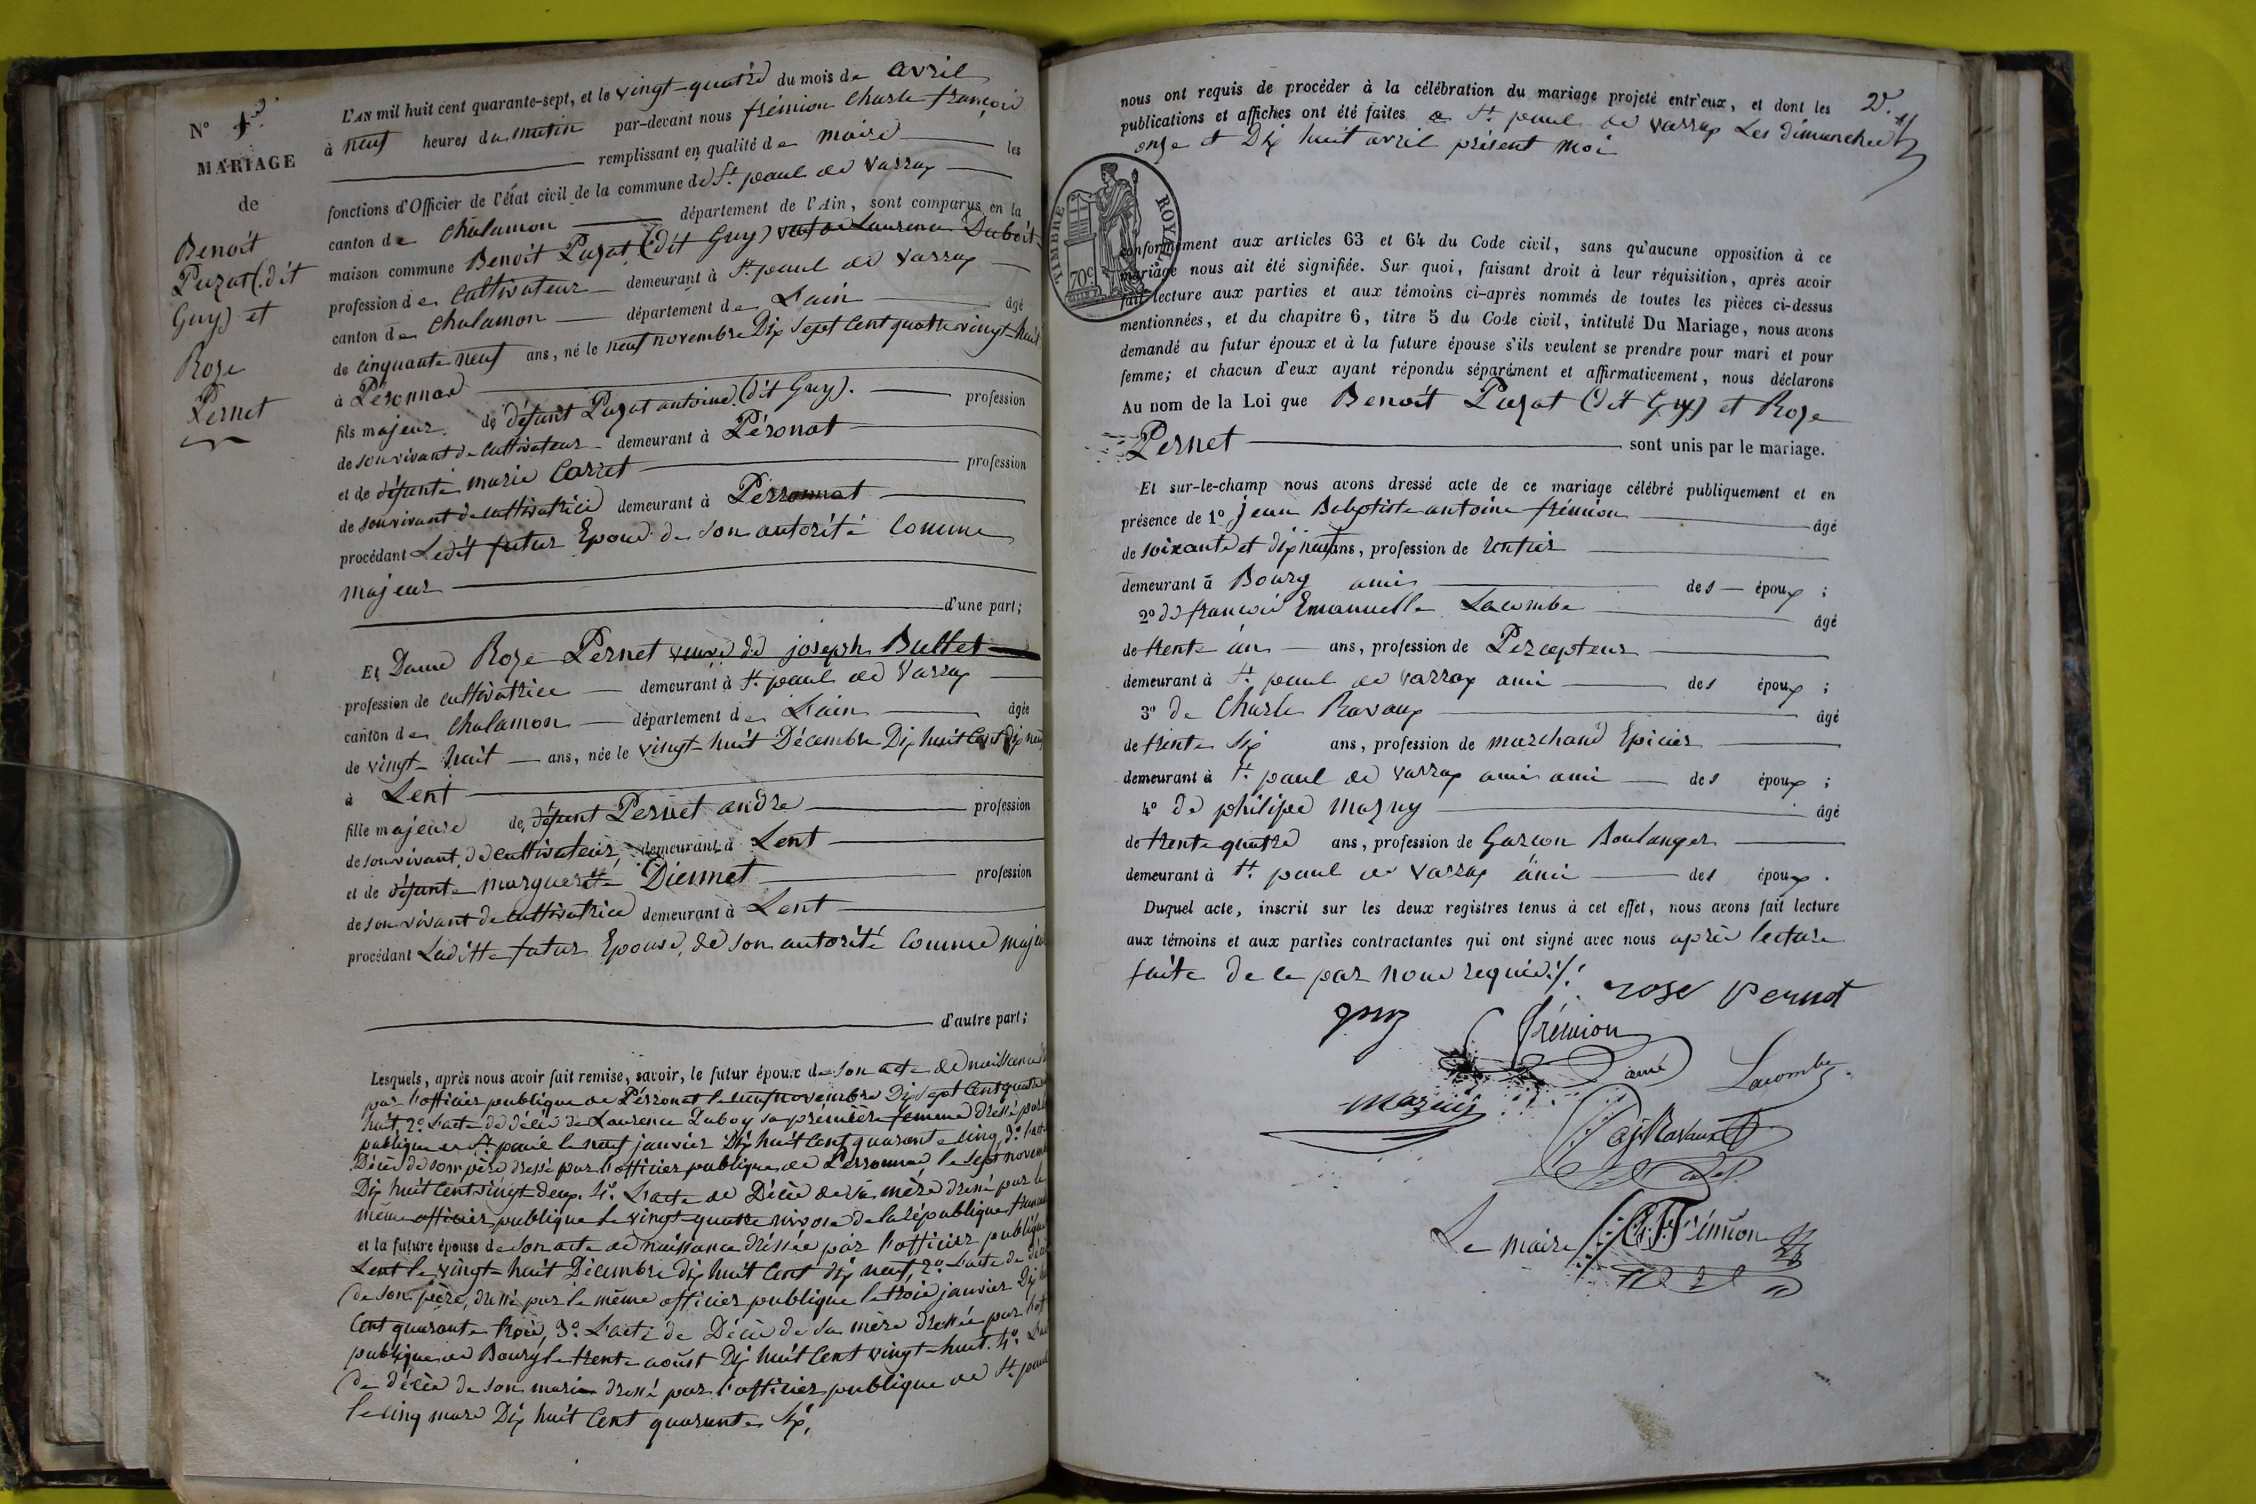 N° 4
MARIAGE
de
Benoît
Puzat (dit
Guy) et
Roze
Pernet
L'AN mil huit cent quarante-sept, et le vingt-quatre du mois de avril
à neuf heures du matin par-devant nous frémion Charle françois
remplissant en qualité de maire les
fonctions d'Officier de l'état civil de la commune de St. paul de varrax
canton de chalamon département de l'Ain, sont comparus en la
maison commune Benoît Puzat (dit Guy) de Laurence Duboit
profession de cultivateur demeurant à St. paul de varrax
canton de chalamon département de L'ain âgé
de cinquante neuf ans, né le neuf novembre Dix sept cent quatre vingt-huit
à Péronnas
fils majeur de défunt Puzat antoine (dit Guy). profession
de son vivant de cultivateur demeurant à Péronat
et de défunte marie Carret profession
de son vivant de cultivatrice demeurant à Perronnat
procédant Ledit futur Epoux de son autorité Comme
majeur
d'une part;
Et Dame Roze Pernet veuve de joseph Bullet
profession de cultivatrice demeurant à St. paul de varrax
canton de chalamon département de L'ain âgée
de vingt-huit ans, née le vingt-huit Décembre Dix huit Cent dix neuf
à Lent
fille majeure de défunt Pernet andre profession
de son vivant de cultivateur, demeurant à Lent
et de défunte marguerite Diennet profession
de son vivant de cultivatrice demeurant à Lent
procédant Laditte futur Epouse, de son autorité Comme majeu
d'autre part;
Lesquels, après nous avoir fait remise, savoir, le futur époux de son acte de naissance
par l'officier publique de Péronat le neuf novembre Dix sept Cent quatre
huit, 2º L'acte de décès de Laurence Duboy sa première femme dressé par
publique de St. paul le neuf janvier Dix huit Cent quarante cinq, 3º l'acte
Décès de son père dressé par l'officier publique de Perronnas le sept novem
Dix huit Cent vingt-deux. 4º L'acte de Décès de sa mère dressé par le
même officier publique le vingt-quatre nivose de la république
et la future épouse de son acte de naissance dressée par l'officier publique
Lent le vingt-huit Décembre dix huit Cent dix neuf, 2º L'acte de
de son père, dressé par le même officier publique le trois janvier Dix
Cent quarante trois, 3º L'acte de Décès de sa mère dressée par
publique de Bourg le trente août Dix huit Cent vingt-huit. 4º
de décès de son mari dressé par l'officier publique de St. paul
le cinq mars Dix huit Cent quarante six,
nous ont requis de procéder à la célébration du mariage projeté entr'eux, et dont les
publications et affiches ont été faites a St. paul de varrax Les dimanches
onze et Dix huit avril présent mois
TIMBRE ROYAL
70 c
conformément aux articles 63 et 64 du Code civil, sans qu'aucune opposition à ce
mariage nous ait été signifiée. Sur quoi, faisant droit à leur réquisition, après avoir
fait lecture aux parties et aux témoins ci-après nommés de toutes les pièces ci-dessus
mentionnées, et du chapitre 6, titre 5 du Code civil, intitulé Du Mariage, nous avons
demandé au futur époux et à la future épouse s'ils veulent se prendre pour mari et pour
femme; et chacun d'eux ayant répondu séparément et affirmativement, nous déclarons
Au nom de la Loi que Benoît Puzat (dit Guy) et Roze
Pernet sont unis par le mariage.
Et sur-le-champ nous avons dressé acte de ce mariage célébré publiquement et en
présence de 1º jean Babptiste antoine frémion âgé
de soixante et dix neuf ans, profession de rentier
demeurant à Bourg ami des époux ;
2º de françois Emanuelle Lacombe âgé
de trente un ans, profession de Percepteur
demeurant à St. paul de varrax ami des époux ;
3º de Charle Ravaux âgé
de trente six ans, profession de marchand Epicier
demeurant à St. paul de varrax ami ami des époux ;
4º de philipe Mazuy âgé
de trente quatre ans, profession de Garcon Boulanger
demeurant à St. paul de varrax ami des époux.
Duquel acte, inscrit sur les deux registres tenus à cet effet, nous avons fait lecture
aux témoins et aux parties contractantes qui ont signé avec nous après lecture
faite de ce par nous requis ./.
rose pernot
guy
frémion
ainé
Lacombe
Mazuy
Ravaux
Le maire C. F. Frémion